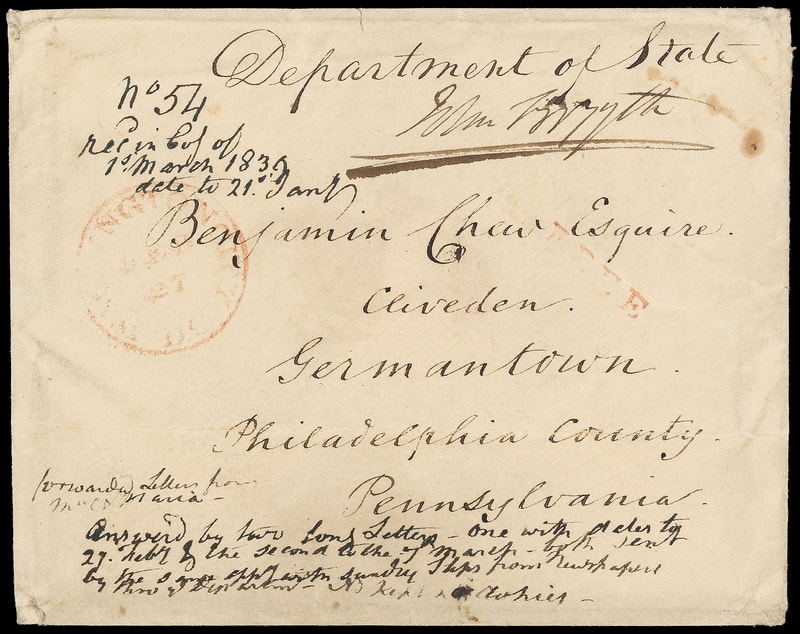 Department of State
John Forsyth
No 54
rec'd in Cof of
1st March 1839
date to 21st Jany
Benjamin Chew Esquire.
Cliveden.
Germantown.
Philadelphia County.
Pennsylvania.
FREE
forwarded Letters from
Maria -
Answer'd by two long Letters - one with dates to
27. Feby & the second to the of March - both sent
by the same with sundry slips from Newspapers
copies -